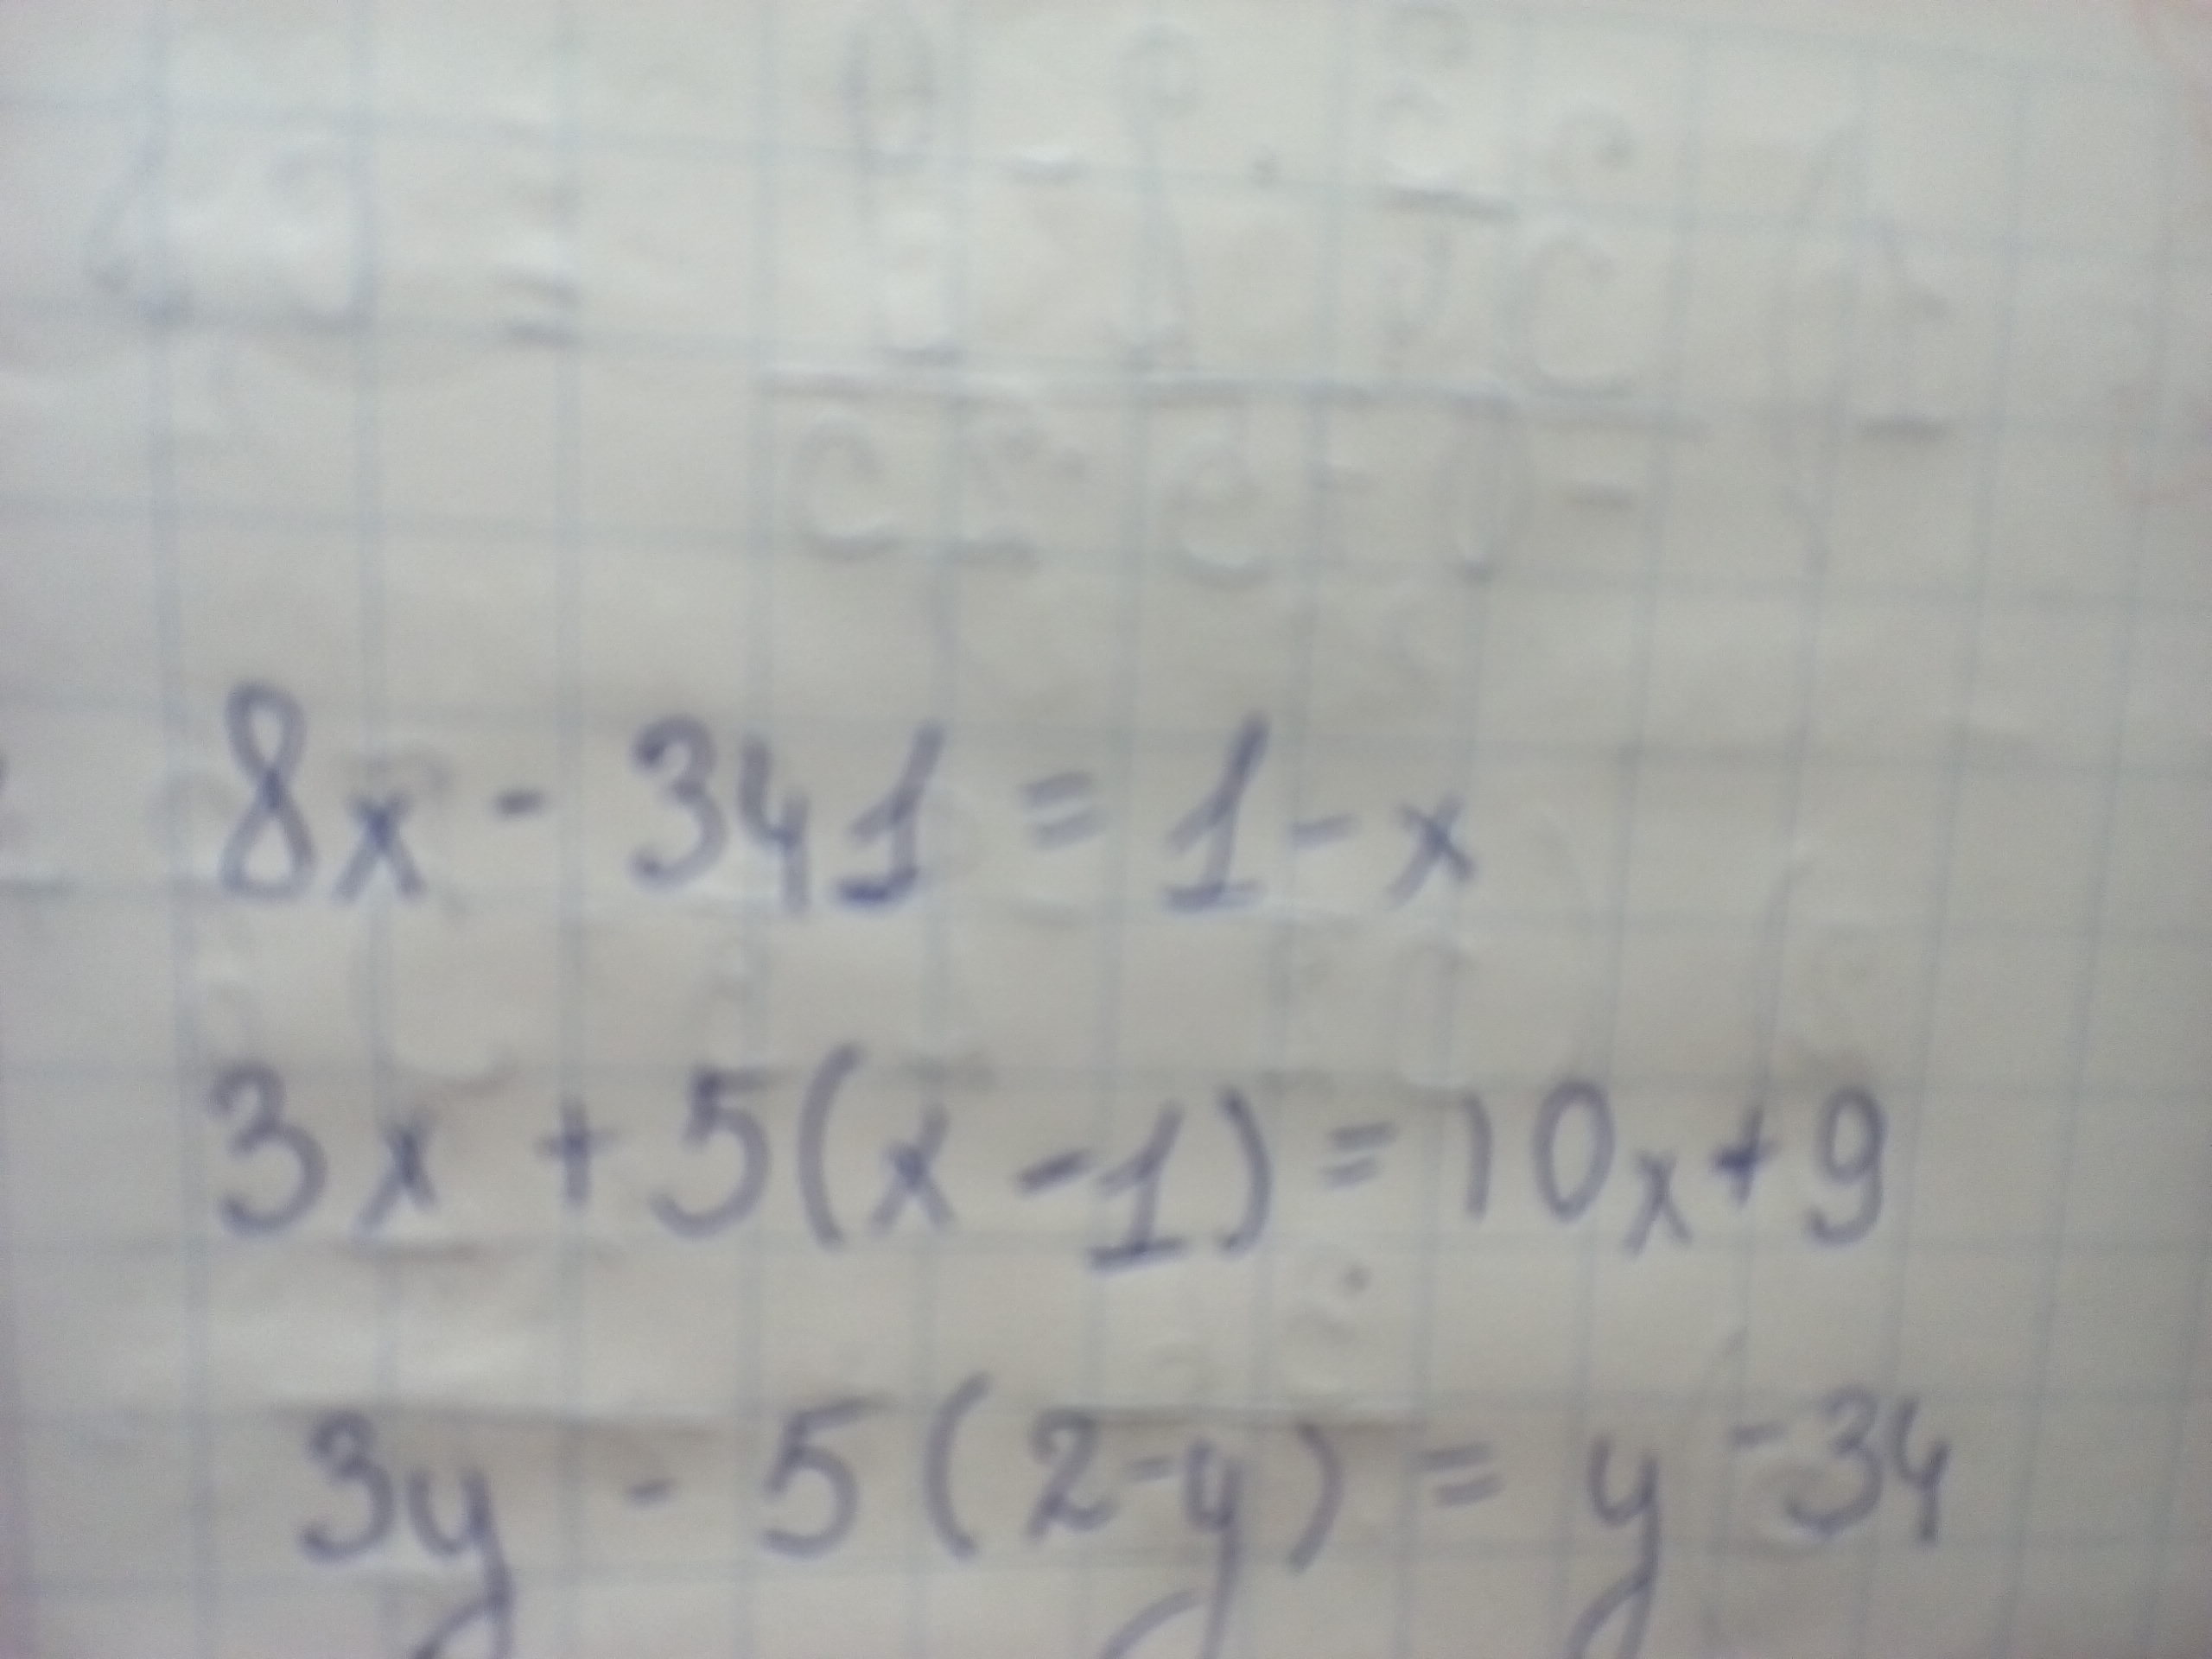 8x - 341 = 1 - x
3x + 5(x - 1) = 10x + 9
3y - 5(2 - y) = y - 34